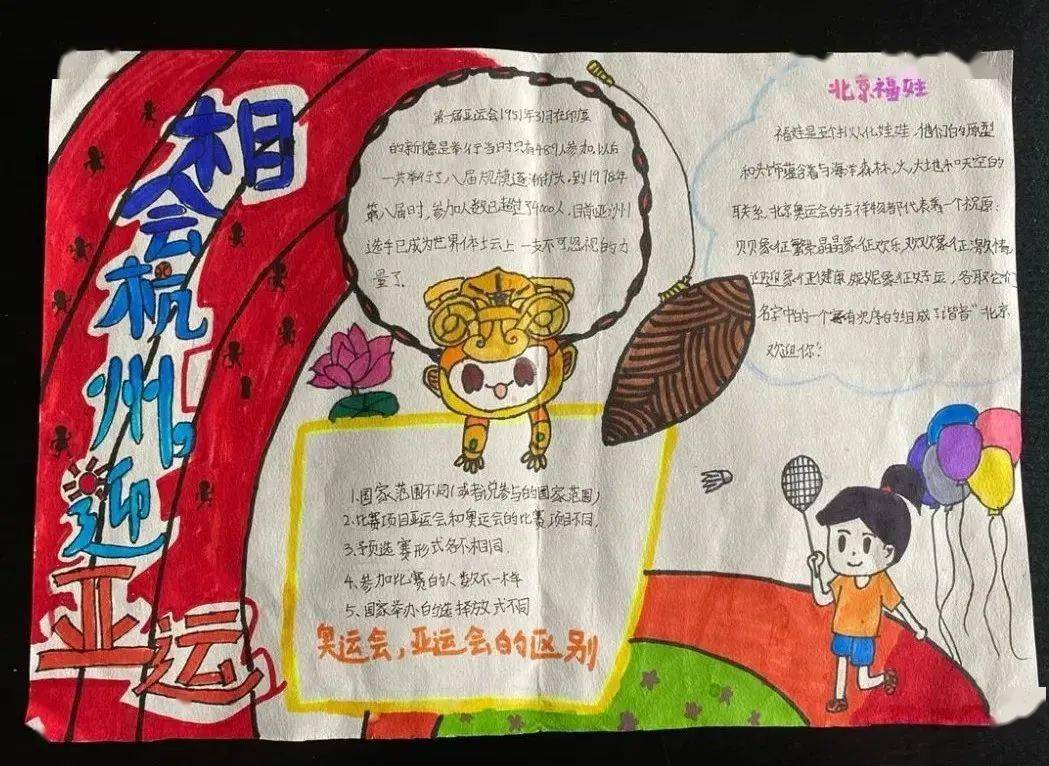 相会杭州
迎亚运
第一届亚运会1951年3月在印度
的新德里举行当时只有489人参加,以后
一共举行了八届规模逐渐扩大,到1978年
第八届时,参加人数已超过了4000人,目前亚洲
选手已成为世界体坛上一支不可忽视的力
量了.
北京福娃
福娃是五个拟人化娃娃,他们的原型
和头饰蕴含着与海洋森林,火,大地和天空的
联系,北京奥运会的吉祥物都代表着一个祝愿:
贝贝象征繁荣晶晶象征欢乐欢欢象征激情
迎迎象征健康妮妮象征好运,各取它们
名字中的一个字有次序的组成了谐音"北京
欢迎你:
1.国家范围不同(或者说参与的国家范围)
2.比赛项目亚运会和奥运会的比赛项目不同.
3.预选赛形式各不相同.
4.参加比赛的人数不一样
5、国家举办的选择方式不同
奥运会,亚运会的区别